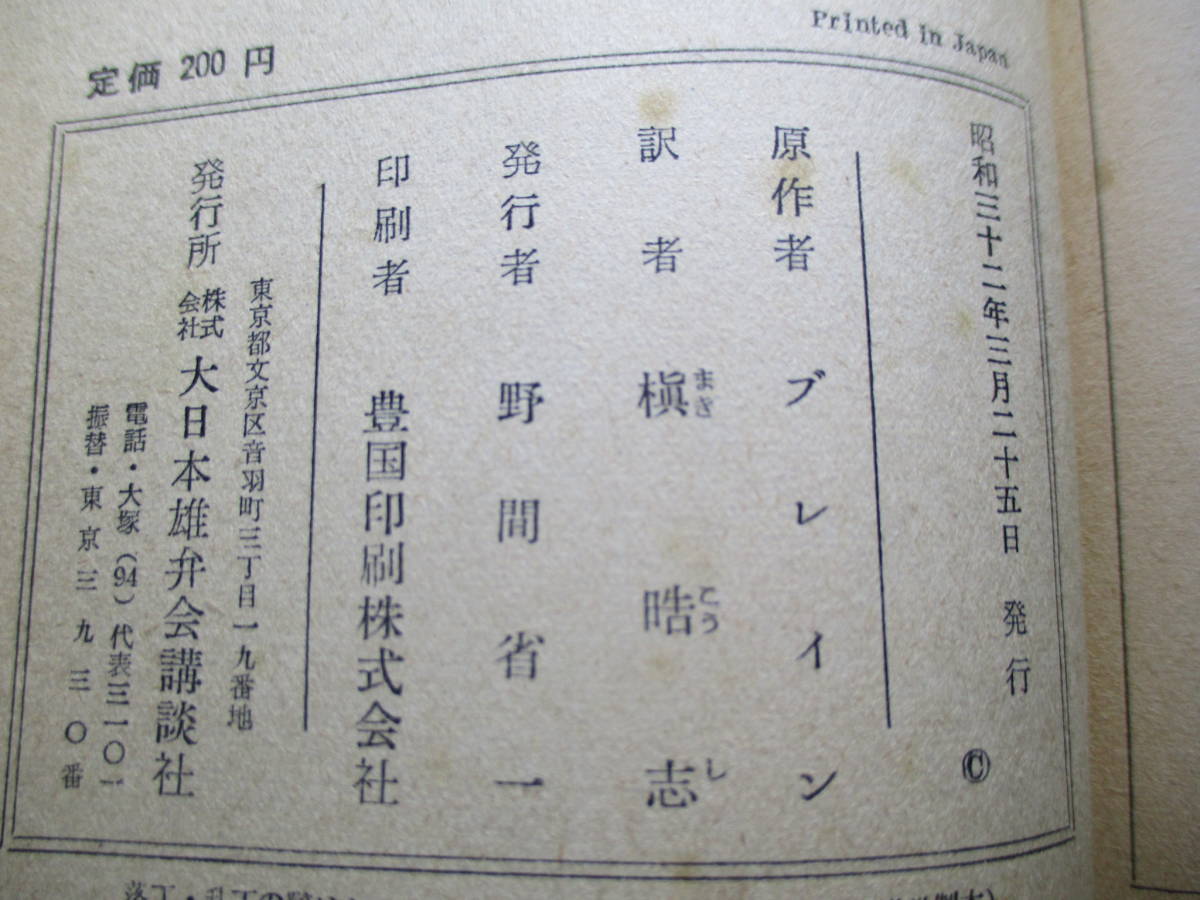 Printed in Japan
定価 200 円
昭和三十二年三月二十五日 発行 ©
原作者 ブレイン
訳者 槇晧志
まき こう し
発行者 野間省一
印刷者 豊国印刷株式会社
東京都文京区音羽町三丁目一九番地
発行所 株式会社 大日本雄弁会講談社
電話・大塚(94)代表三一〇一
振替・東京三九三〇番